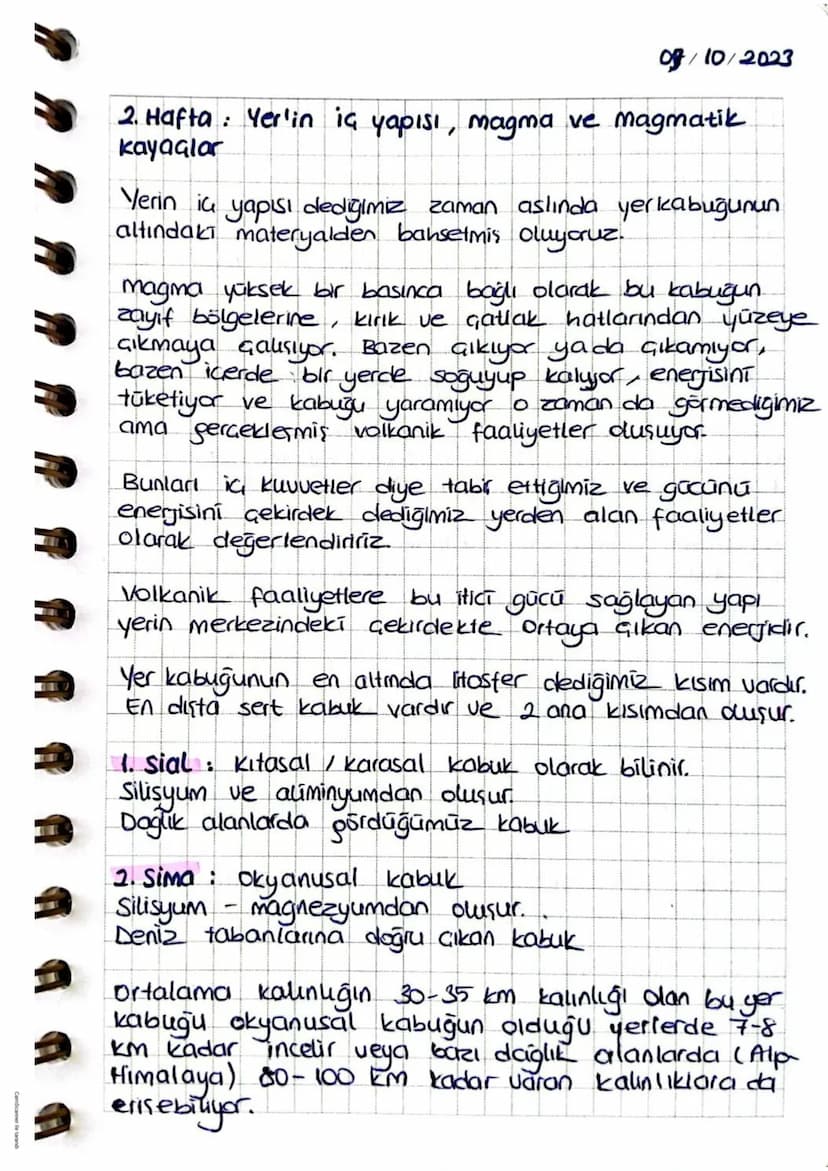 09/10/2023
2. Hafta : Yer'in iç yapısı, magma ve magmatik
kayaçlar
Yerin iç yapısı dediğimiz zaman aslında yerkabuğunun
altındaki materyalden bahsetmiş oluyoruz.
Magma yüksek bir basınca bağlı olarak bu kabuğun
zayıf bölgelerine, kırık ve çatlak hatlarından yüzeye
çıkmaya çalışıyor. Bazen çıkıyor yada çıkamıyor,
bazen içerde bir yerde soğuyup kalıyor, enerjisini
tüketiyor ve kabuğu yaramıyor o zaman da görmediğimiz
ama gerçekleşmiş volkanik faaliyetler oluşuyor.
Bunları iç kuvvetler diye tabir ettiğimiz ve gücünü
energisini çekirdek dediğimiz yerden alan faaliyetler
olarak değerlendiririz.
Volkanik faaliyetlere bu itici gücü sağlayan yapı
yerin merkezindeki çekirdekte ortaya çıkan enerjidir.
Yer kabuğunun en altında litosfer dediğimiz kısım vardır.
En dışta sert kabuk vardır ve 2 ana kısımdan oluşur.
1. Sial : Kıtasal / karasal kabuk olarak bilinir.
Silisyum ve aliminyumdan oluşur.
Dağlık alanlarda gördüğümüz kabuk
2. Sima : Okyanusal kabuk
Silisyum - magnezyumdan oluşur.
Deniz tabanlarına doğru çıkan kabuk
Ortalama kalınlığın 30-35 km kalınlığı olan bu yer
kabuğu okyanusal kabuğun olduğu yerlerde 7-8
km kadar incelir veya bazı dağlık alanlarda (Alp-
Himalaya) 80-100 km kadar varan kalınlıklara da
erişebiliyor.